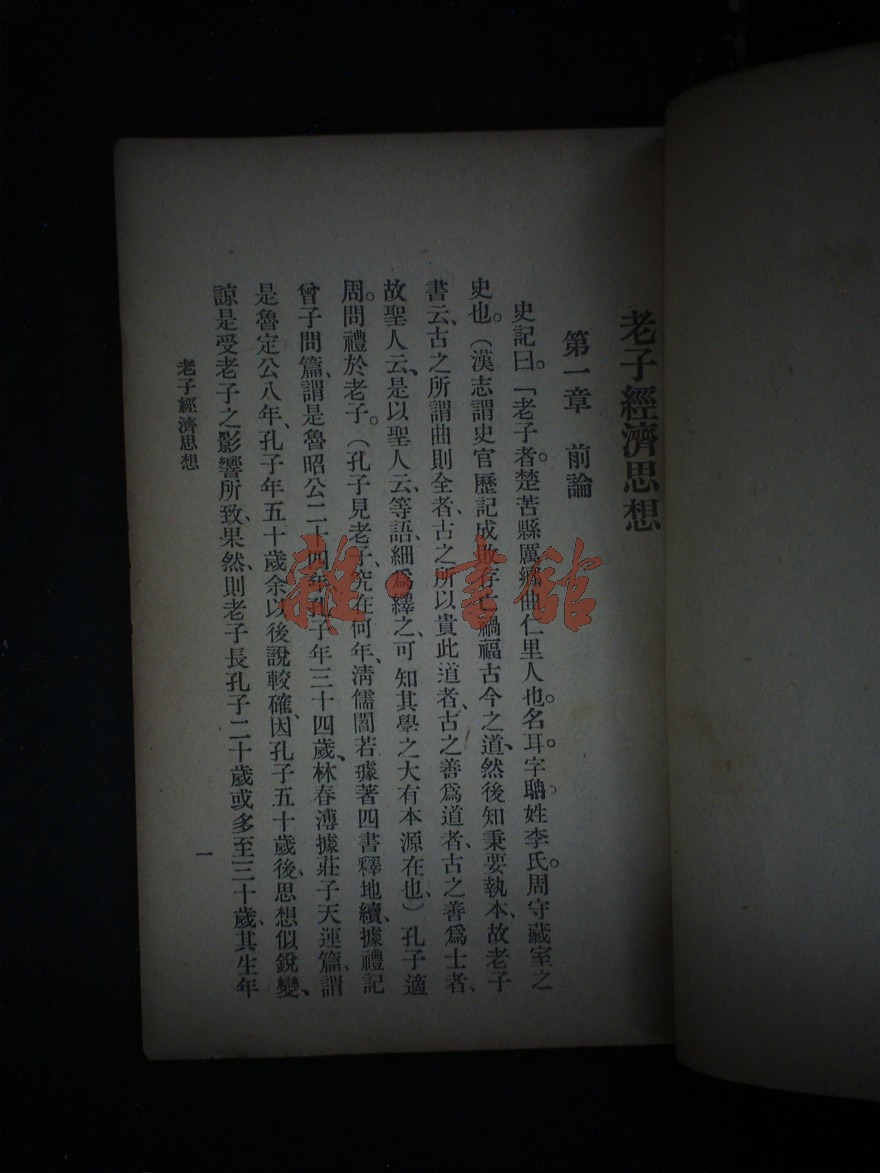 老子經濟思想
第一章　前論
史記曰。「老子者。楚苦縣厲鄉曲仁里人也。名耳。字聃。姓李氏。周守藏室之
史也。（漢志謂史官歷記成敗存亡禍福古今之道、然後知秉要執本、故老子
書云、古之所謂曲則全者、古之所以貴此道者、古之善爲道者、古之善爲士者、
故聖人云、是以聖人云、等語、細爲繹之、可知其學之大有本源在也、）孔子適
周。問禮於老子。（孔子見老子、究在何年、淸儒閻若璩著四書釋地續、據禮記
曾子問篇、謂是魯昭公二十四年、孔子年三十四歲、林春溥據莊子天運篇、謂
是魯定公八年、孔子年五十歲、余以後說較確、因孔子五十歲後、思想似銳變、
諒是受老子之影響所致、果然、則老子長孔子二十歲或多至三十歲、其生年
老子經濟思想
一
雜·書館